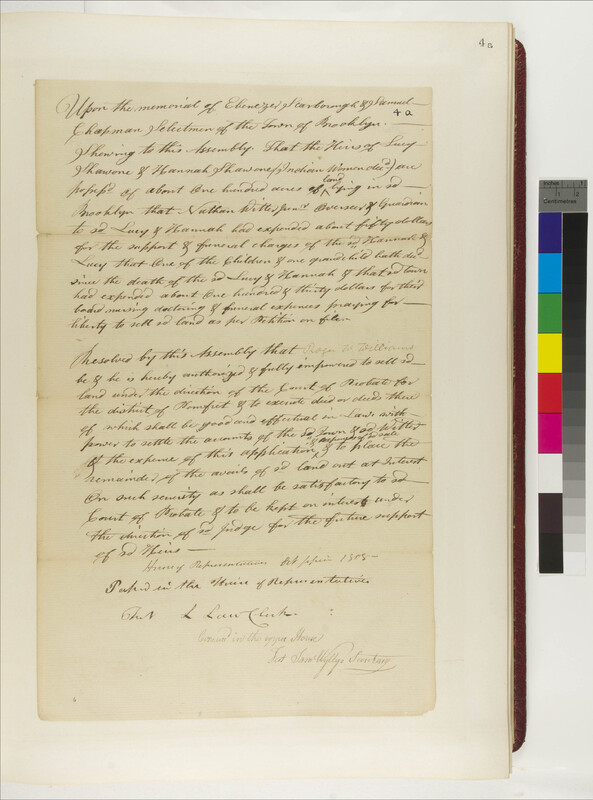 4a
Upon the memorial of Ebenezer Scarborough & Samuel
4a
Chapman Selectmen of the Town of Brooklyn.
Shewing to this Assembly That the Heirs of Lucy
Shawone & Hannah Shawone (Indian Women decd) are
possessd of about One hundred acres of land lying in sd
Brooklyn that Nathan Witter Junr Overseer & Guardian
to sd Lucy & Hannah had expended about fifty dollars
for the support & funeral charges of the sd Hannah &
Lucy that One of the Children & one grandchild hath died
since the death of the sd Lucy & Hannah & that sd town
had expended about One hundred & thirty dollars for their
nursing doctoring & funeral expences praying for
liberty to sell sd land as per Petition on file.
Resolved by this Assembly that
be & he is hereby authorized & fully empowered to sell sd
land under the direction of the Court of Probate for
the district of Pomfret & to execute deed or deeds there
of which shall be good and effectual in Law with
power to settle the accounts of the sd Town & sd Witter
& the expence of this application & expences of sd sale & to place the
remainder of the avails of sd land out at Interest
On such security as shall be satisfactory to sd
Court of Probate & to be kept on interest under
the direction of sd judge for the future support
of sd Heirs
House of Representatives Oct
Passed in the House of Representatives
Test L Law Clerk
in the upper House
Test Saml Wyllys Secretary
Inches
1
2
Centimetres